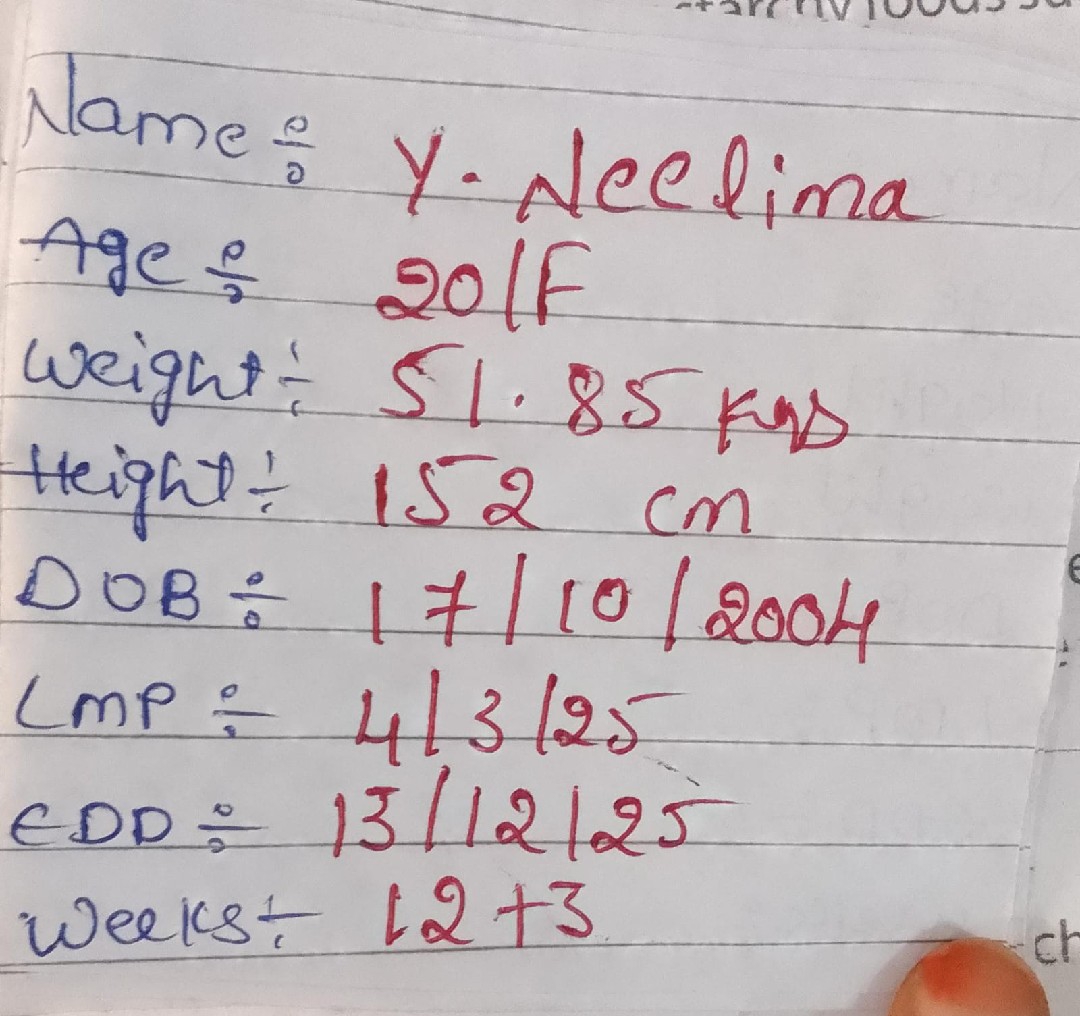 Name ÷ Y. Neelima
Age ÷ 20/F
Weight ÷ 51.85 Kgs
Height ÷ 152 cm
DOB ÷ 17/10/2004
LMP ÷ 4/3/25
EDD ÷ 13/12/25
Weeks ÷ 12+3
ch